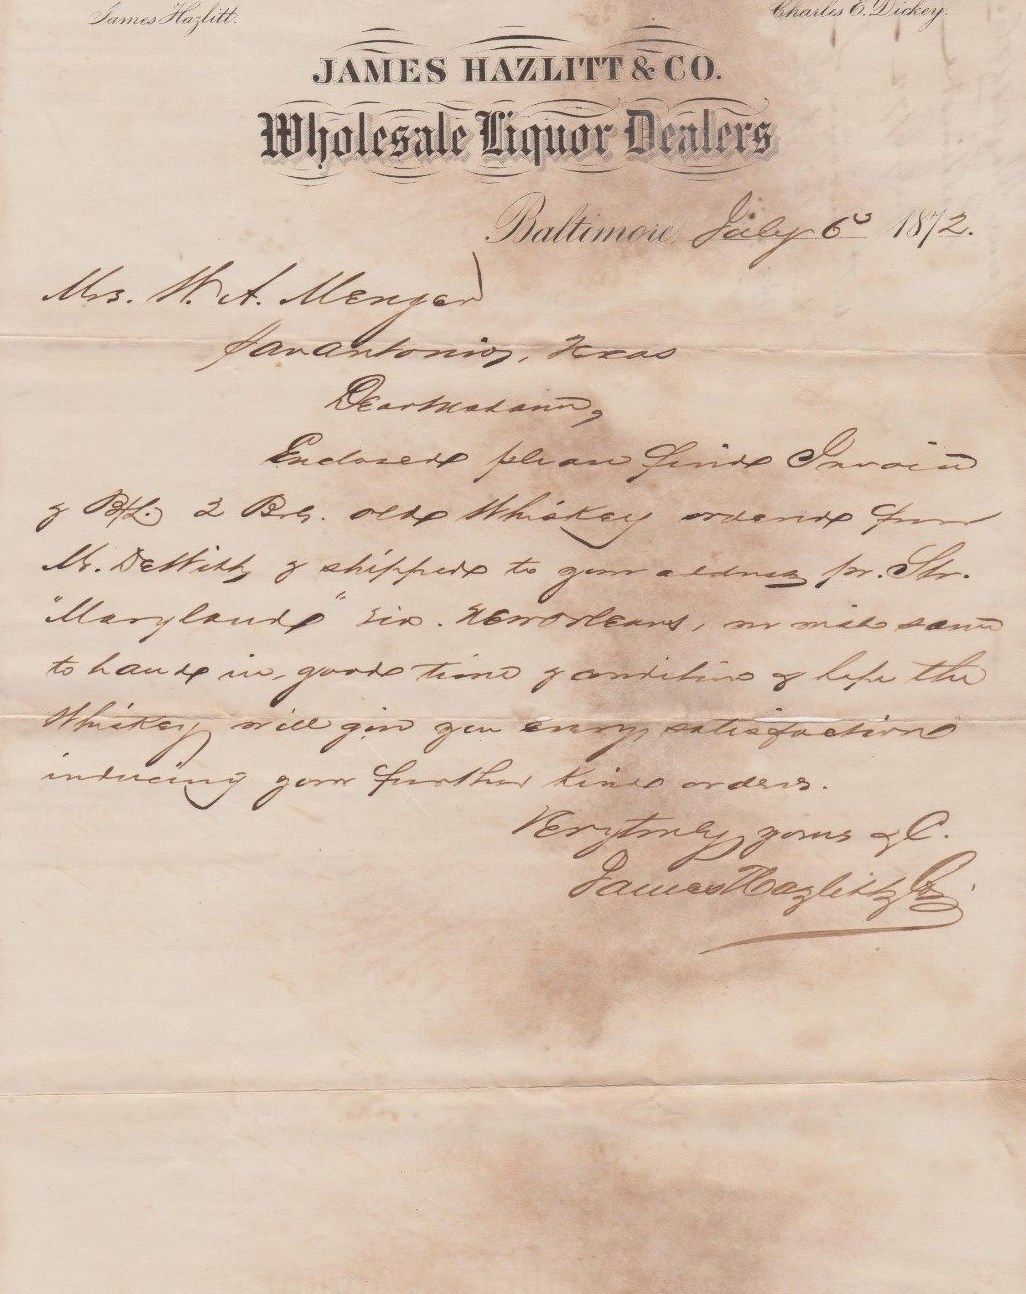 James Hazlitt. Charles C. Dickey.
JAMES HAZLITT & CO.
Wholesale Liquor Dealers
Baltimore, July 6th 1872.
Mrs. W. A. Menger
San Antonio, Texas
Dear Madam,
Enclosed please find Invoice
& B/L. 2 Brls. old Whiskey ordered from
Mr. DeWitt, & shipped to your address pr. Str.
"Maryland" via. New Orleans, same
to hand in, good time & condition & hope the
Whiskey, will give you every satisfaction
inducing your further kind orders.
Very truly, yours &C.
James Hazlitt, Co.